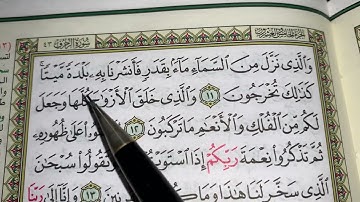 سورة الزخرف ٤٣
وَالَّذِي نَزَّلَ مِنَ السَّمَاءِ مَاءً بِقَدَرٍ فَأَنشَرْنَا بِهِ بَلْدَةً مَّيْتًا
كَذَٰلِكَ تُخْرَجُونَ ١١ وَالَّذِي خَلَقَ الْأَزْوَٰجَ كُلَّهَا وَجَعَلَ
لَكُم مِّنَ الْفُلْكِ وَالْأَنْعَٰمِ مَا تَرْكَبُونَ ١٢ عَلَىٰ ظُهُورِهِ
ثُمَّ تَذْكُرُوا نِعْمَةَ رَبِّكُمْ إِذَا وَتَقُولُوا سُبْحَٰنَ
الَّذِي سَخَّرَ لَنَا هَٰذَا وَمَا ١٣ وَإِنَّا إِلَىٰ رَبِّنَا